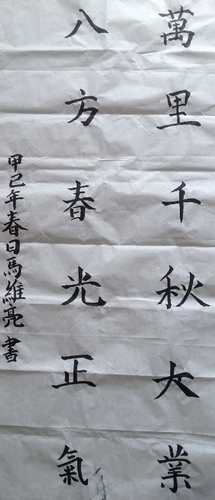 萬里千秋大業
八方春光正氣
甲巳年春日馬維亮書